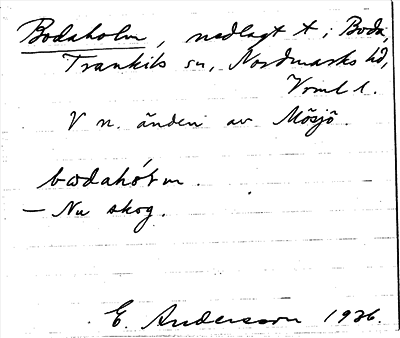 Bodaholm, nedlagt t. i Boda,
Trankils sn, Nordmarks hd,
Vrml l.
V n. änden av Mösjö.
bωdahót m.
— Nu skog.
E. Andersson 1926.